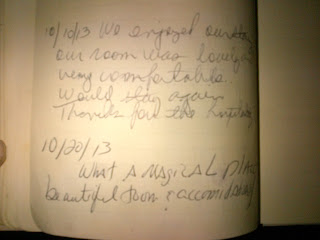 10/10/13 We enjoyed our stay
our room was lovely &
very comfortable.
Would stay again
Thanks for the
10/20/13
What A MAGICAL PlAce
beautiful room &